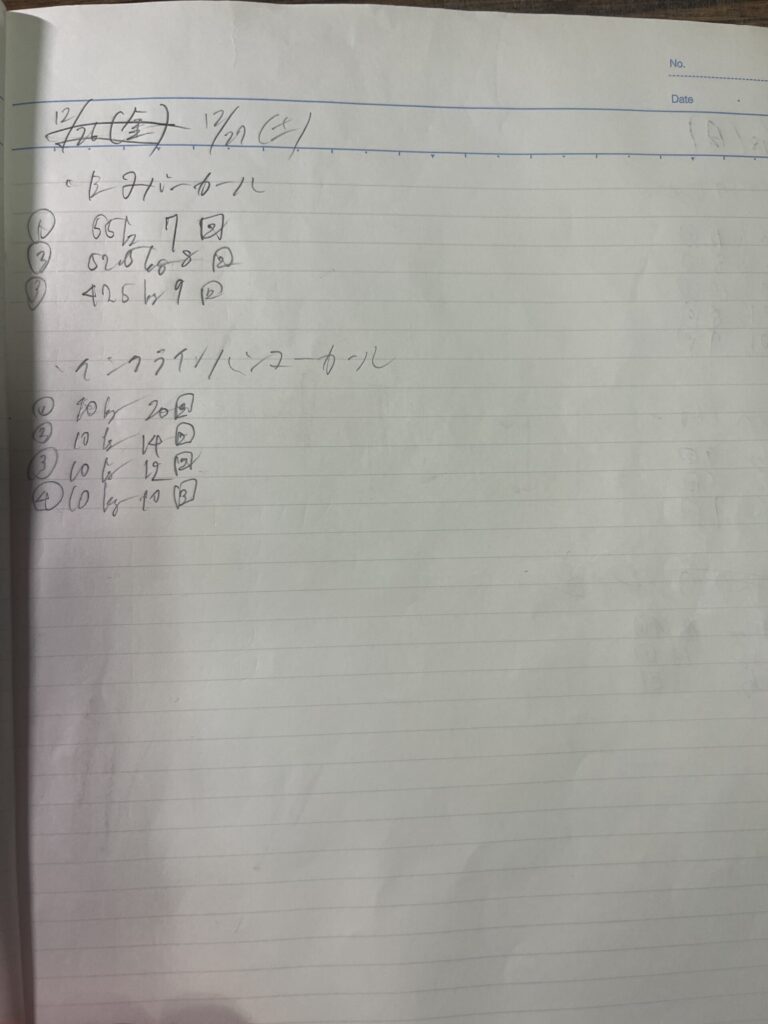 No.
Date
12/26(金) 12/27(土)
・EZバーカール
① 55kg 7回
② 52.5kg 8回
③ 42.5kg 9回
・インクラインハンマーカール
① 10kg 20回
② 10kg 14回
③ 10kg 12回
④ 10kg 10回